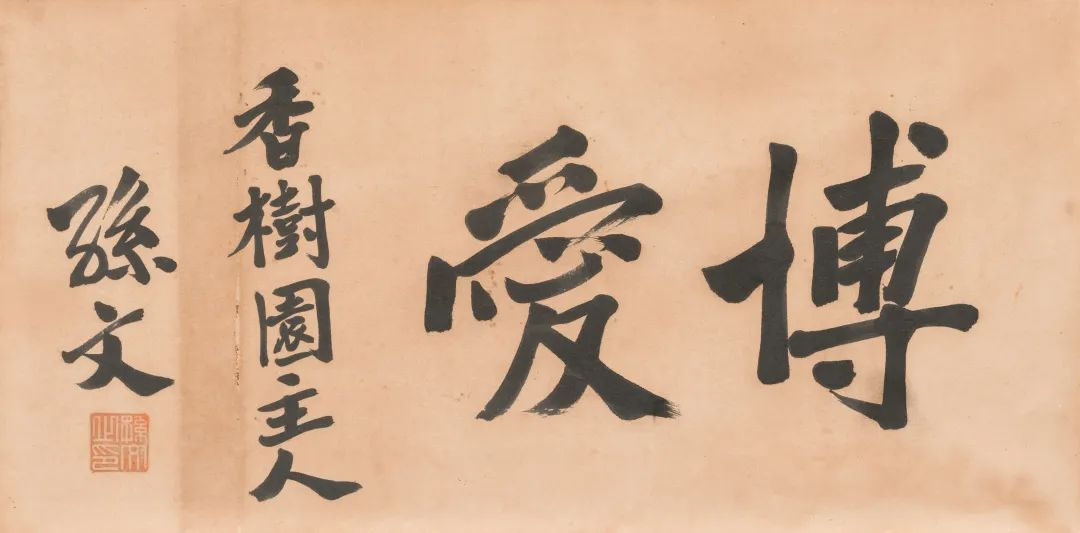 博愛
香樹園主人
孫文
孫文之印